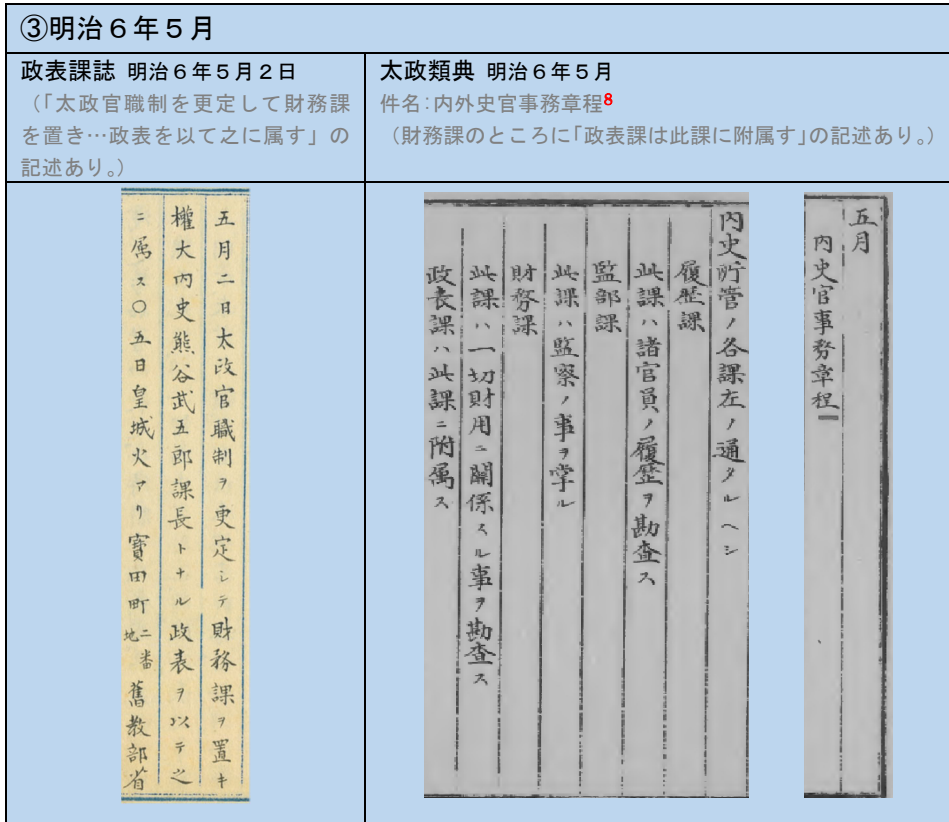 ③明治６年５月
政表課誌 明治６年５月２日
（「太政官職制を更定して財務課
を置き…政表を以て之に属す」の
記述あり。）
太政類典 明治６年５月
件名：内外史官事務章程8
（財務課のところに「政表課は此課に附属す」の記述あり。）
五月二日太政官職制ヲ更定シテ財務課ヲ置キ
權大内史熊谷武五郎課長トナル政表ヲ以テ之
ニ属ス〇五日皇城火アリ寶田町二番地舊教部省
五月
内史官事務章程
内史所管ノ各課左ノ通タルヘシ
履歴課
此課ハ諸官員ノ履歴ヲ勘査ス
監部課
此課ハ監察ノ事ヲ掌ル
財務課
此課ハ一切財用ニ關係スル事ヲ勘査ス
政表課ハ此課ニ附属ス